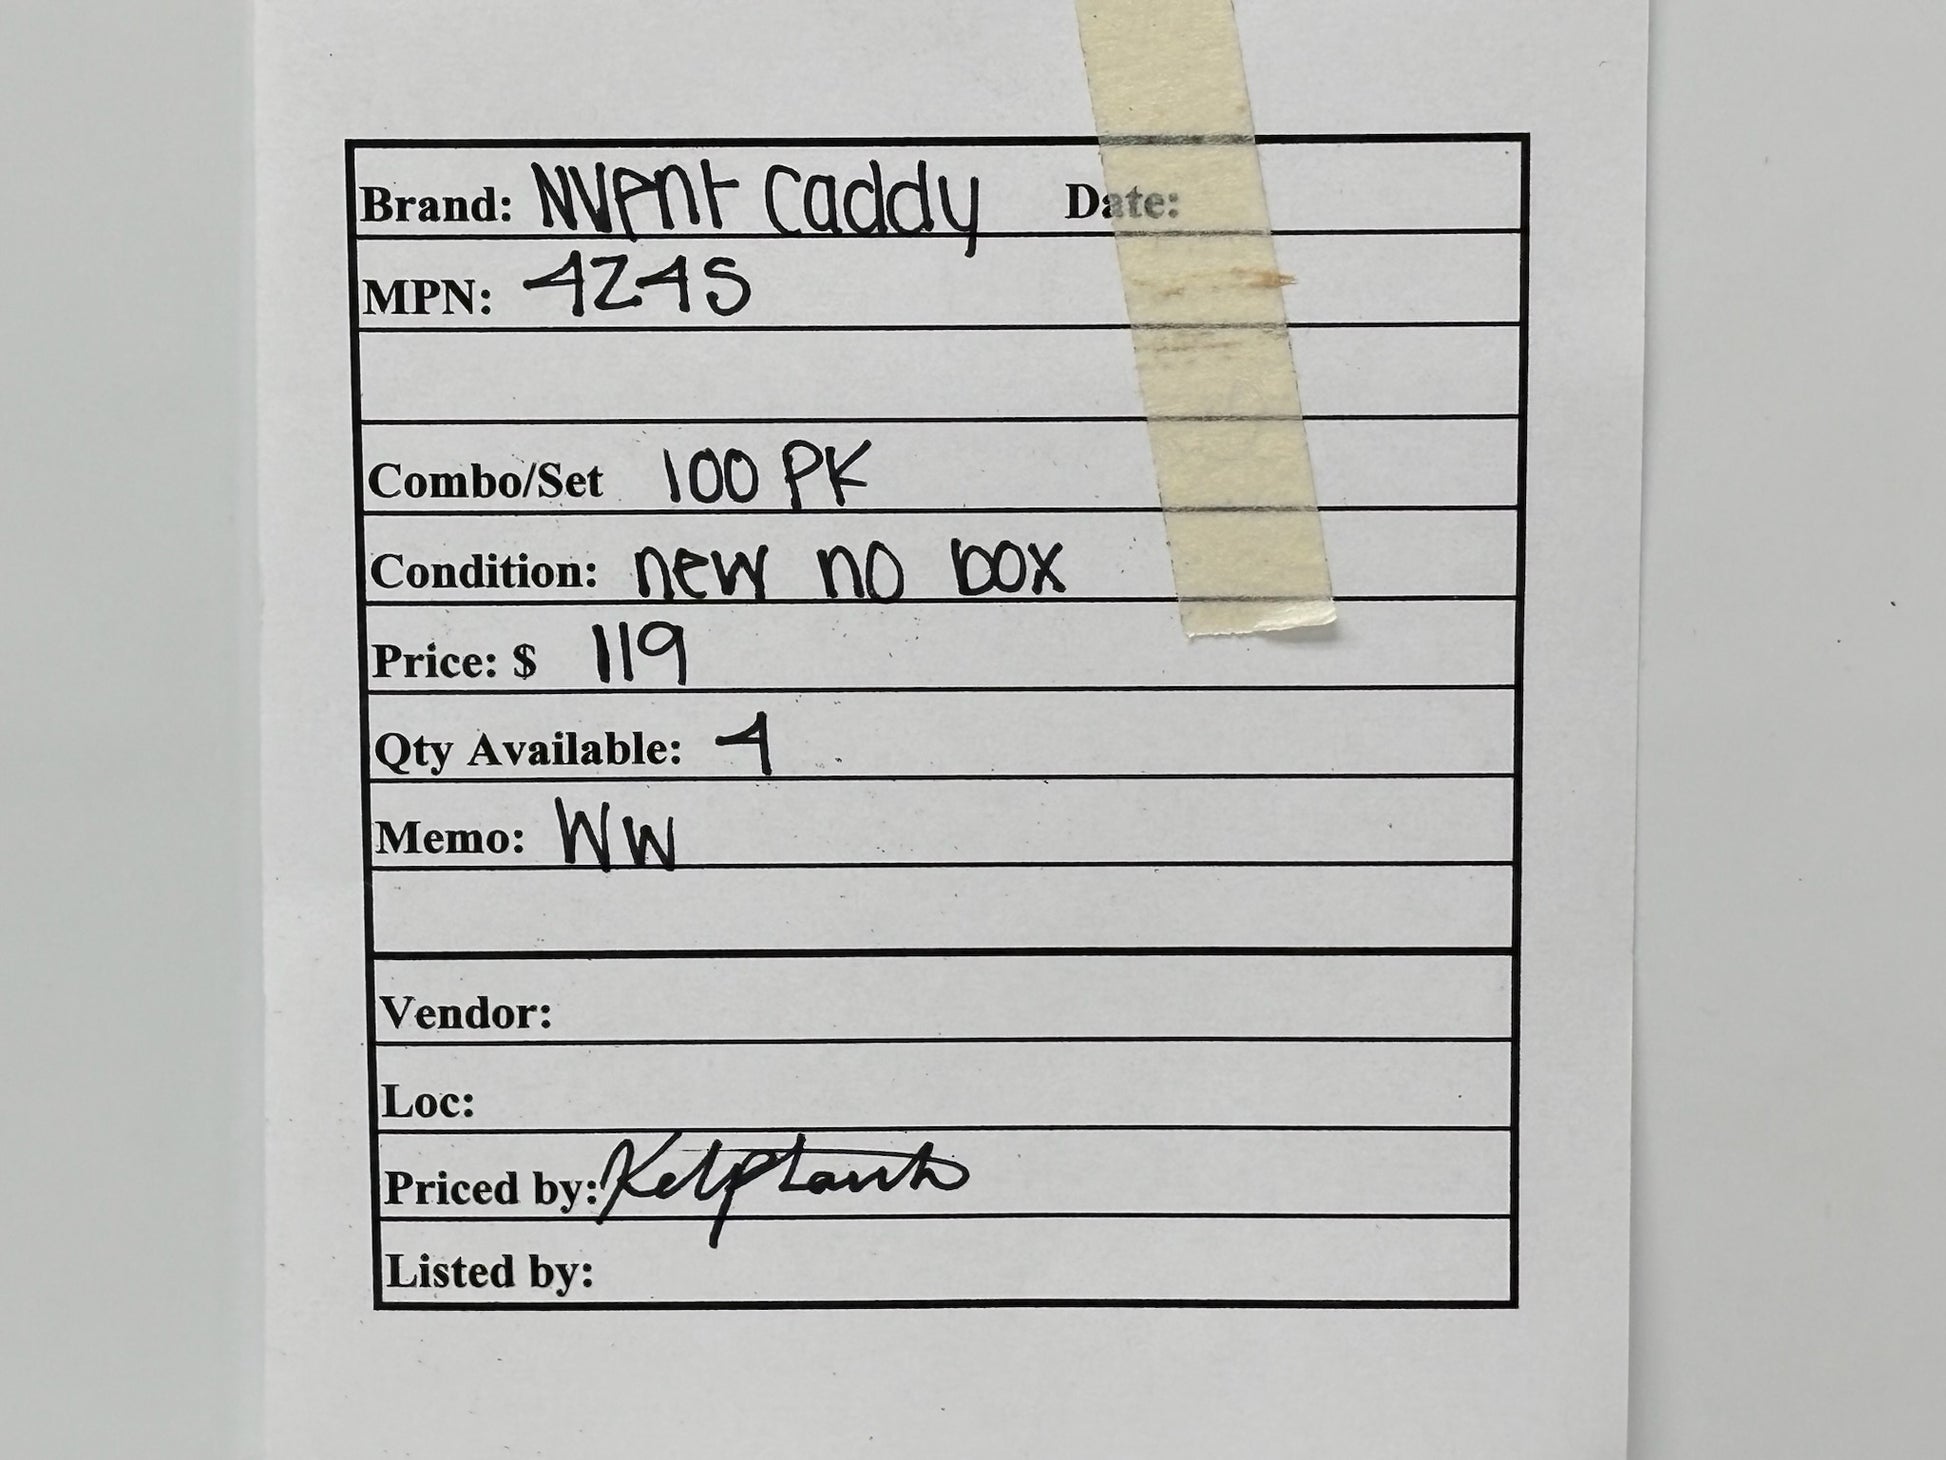 Brand: NVent Caddy Date:
MPN: 4Z4S
Combo/Set 100 PK
Condition: new no box
Price: $ 119
Qty Available: 4
Memo: WW
Vendor:
Loc:
Priced by:
Listed by: